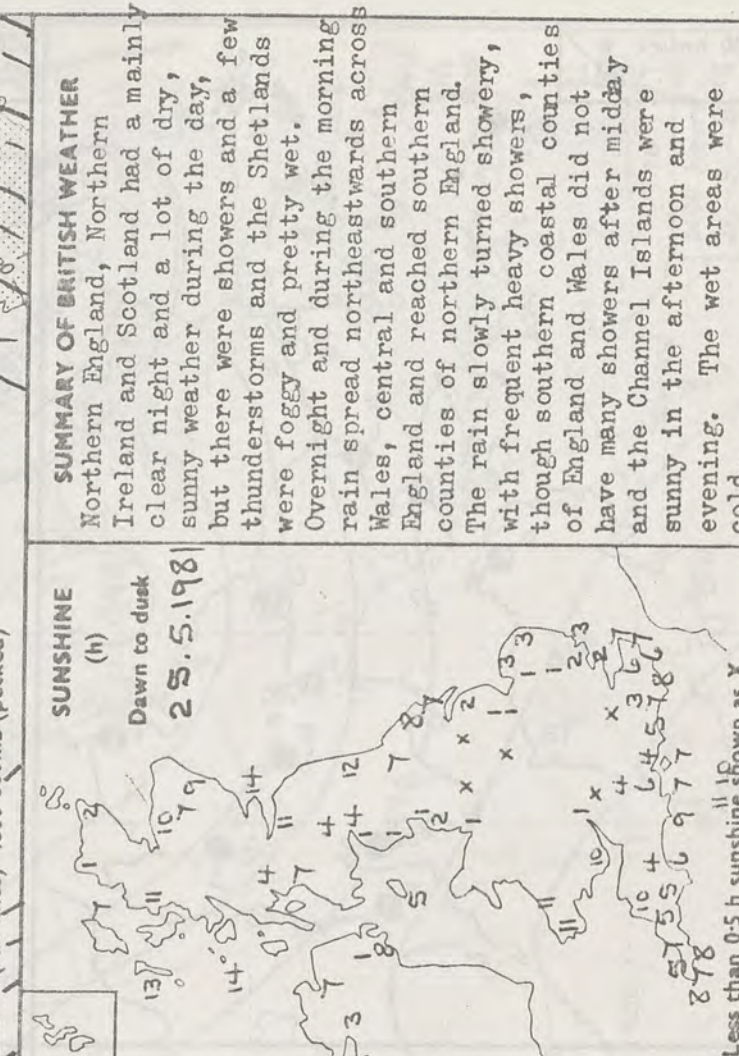 SUNSHINE
(h)
Dawn to dusk
25.5.1981
7 1 2
11 10
7 9
13
14 4 14
7 11
4 12
7 1 4
3 8 1 7
5 1 8 7
2
1 x x 2
x 1
1 3
11 1 3
11 1 2 3
10 1 x 2
10 4 x 6 7
4 6 4 3 6 7
5 7 5 5 6 9 7 7 5 7 8
8 7 8
11 10
Less than 0·5 h sunshine shown as X
SUMMARY OF BRITISH WEATHER
Northern England, Northern
Ireland and Scotland had a mainly
clear night and a lot of dry,
sunny weather during the day,
but there were showers and a few
thunderstorms and the Shetlands
were foggy and pretty wet.
Overnight and during the morning
rain spread northeastwards across
Wales, central and southern
England and reached southern
counties of northern England.
The rain slowly turned showery,
with frequent heavy showers,
though southern coastal counties
of England and Wales did not
have many showers after midday
and the Channel Islands were
sunny in the afternoon and
evening. The wet areas were
cold